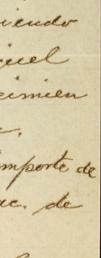 iendo
quel
cimien
.
importe de
ac. de